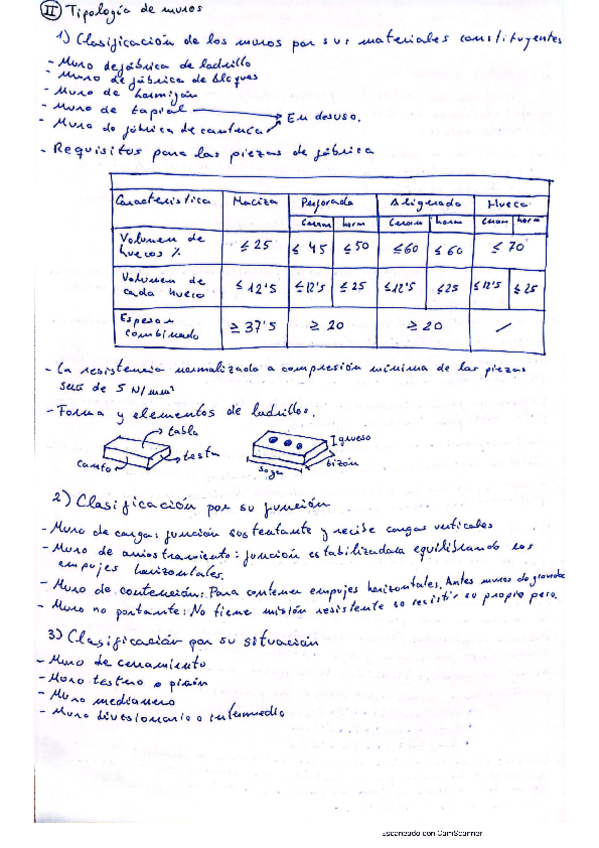 II Tipología de muros
1) Clasificación de los muros por sus materiales constituyentes
- Muro de fábrica de ladrillo
- Muro de fábrica de bloques
- Muro de hormigón
- Muro de tapial
En desuso.
- Muro de fábrica de cantería
- Requisitos para las piezas de fábrica
Característica Maciza Perforada Aligerada Hueca
Ceram horm Ceram horm Ceram horm
Volumen de huecos % ≤ 25 ≤ 45 ≤ 50 ≤ 60 ≤ 60 ≤ 70
Volumen de cada hueco ≤ 12'5 ≤ 12'5 ≤ 25 ≤ 12'5 ≤ 25 ≤ 12'5 ≤ 25
Espesor combinado ≥ 37'5 ≥ 20 ≥ 20 /
- La resistencia normalizada a compresión mínima de las piezas
de 5 N/mm²
- Forma y elementos de ladrillos.
tabla
testa
canto
Grueso
tizón
soga
2) Clasificación por su función
- Muro de carga: función sustentante y recibe cargas verticales
- Muro de arriostramiento: función estabilizadora equilibrando los
empujes horizontales.
- Muro de contención: Para contener empujes horizontales. Antes muros de gravedad
- Muro no portante: No tiene misión resistente so resistir su propio peso.
3) Clasificación por su situación
- Muro de cerramiento
- Muro testero o piñón
- Muro medianero
- Muro divisionario o intermedio
Escaneado con CamScanner